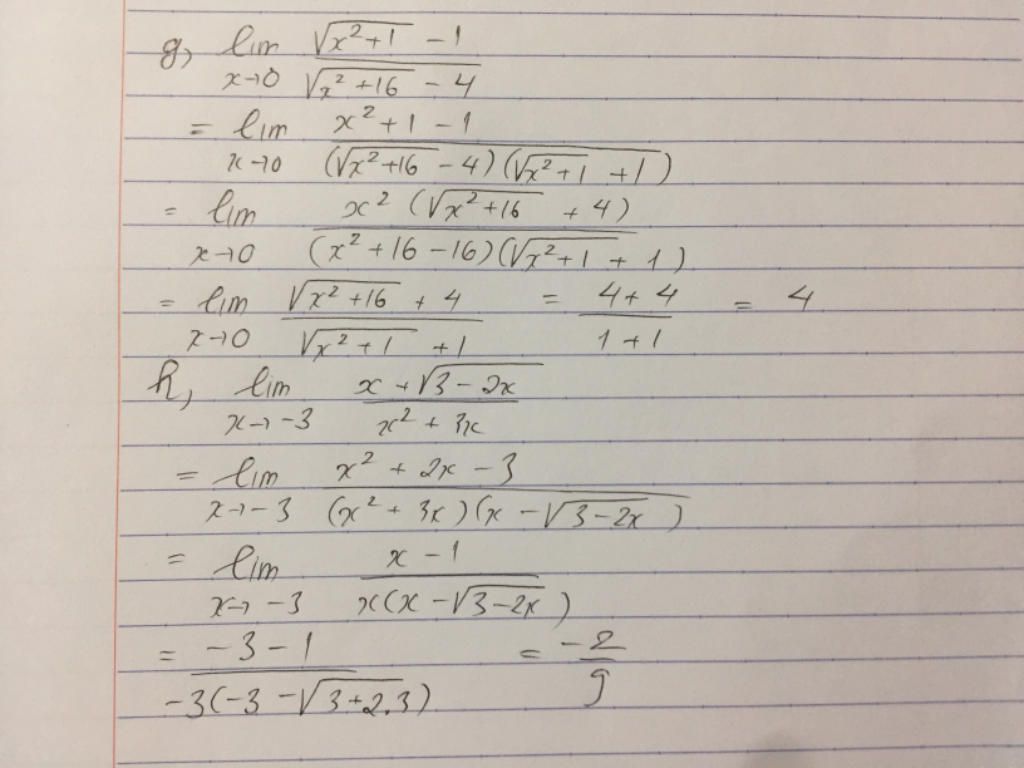 g, lim x→0 (√(x²+1) - 1)/(√(x²+16) - 4)
= lim x→0 (x²+1-1)/((√(x²+16) - 4)(√(x²+1) + 1))
= lim x→0 (x²(√(x²+16) + 4))/((x²+16-16)(√(x²+1) + 1))
= lim x→0 (√(x²+16) + 4)/(√(x²+1) + 1) = (4+4)/(1+1) = 4
h, lim x→-3 (x+√(3-2x))/(x²+3x)
= lim x→-3 (x²+2x-3)/((x²+3x)(x-√(3-2x)))
= lim x→-3 (x-1)/(x(x-√(3-2x)))
= (-3-1)/(-3(-3-√(3+2.3))) = -2/9